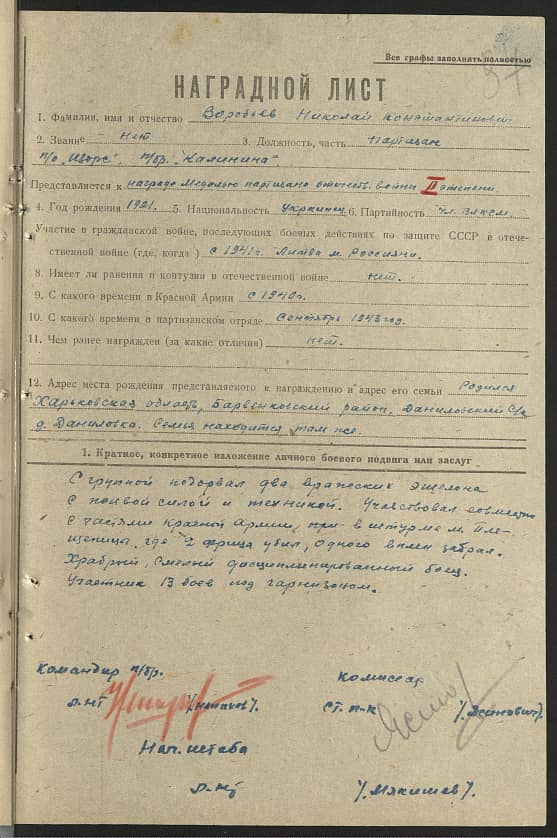 Все графы заполнять полностью
37
НАГРАДНОЙ ЛИСТ
1. Фамилия, имя и отчество Воробьев Николай Константинович
2. Звание нет 3. Должность, часть партизан
п/о „Щорс“, п/бр. „Калинина“.
Представляется к награде Медалью партизана отечеств. войны II степени.
4. Год рождения 1921. 5. Национальность украинец 6. Партийность чл. ВЛКСМ.
Участие в гражданской войне, последующих боевых действиях по защите СССР в отече-
ственной войне (где, когда) с 1941г. Литва м. Россияни.
8. Имеет ли ранения и контузии в отечественной войне нет.
9. С какого времени в Красной Армии с 1940г.
10. С какого времени в партизанском отряде Сентябрь 1943 год.
11. Чем ранее награжден (за какие отличия) нет.
12. Адрес места рождения представляемого к награждению и адрес его семьи Родился
Харьковская область, Барвенковский район, Даниловский с/с
д. Даниловка. Семья находится там же.
1. Краткое, конкретное изложение личного боевого подвига или заслуг
С группой подорвал два вражеских эшелона
с живой силой и техникой. Участвовал совместно
с частями Красной Армии, при штурме м. Пле-
щеницы, где 2 фрица убил, одного в плен забрал.
Храбрый, смелый дисциплинированный боец.
Участник 13 боев под гарнизоном.
Командир п/бр. Комиссар
л-нт ст. п-к /Ясинович/.
Нач. штаба
л-нт /Мякишев/.